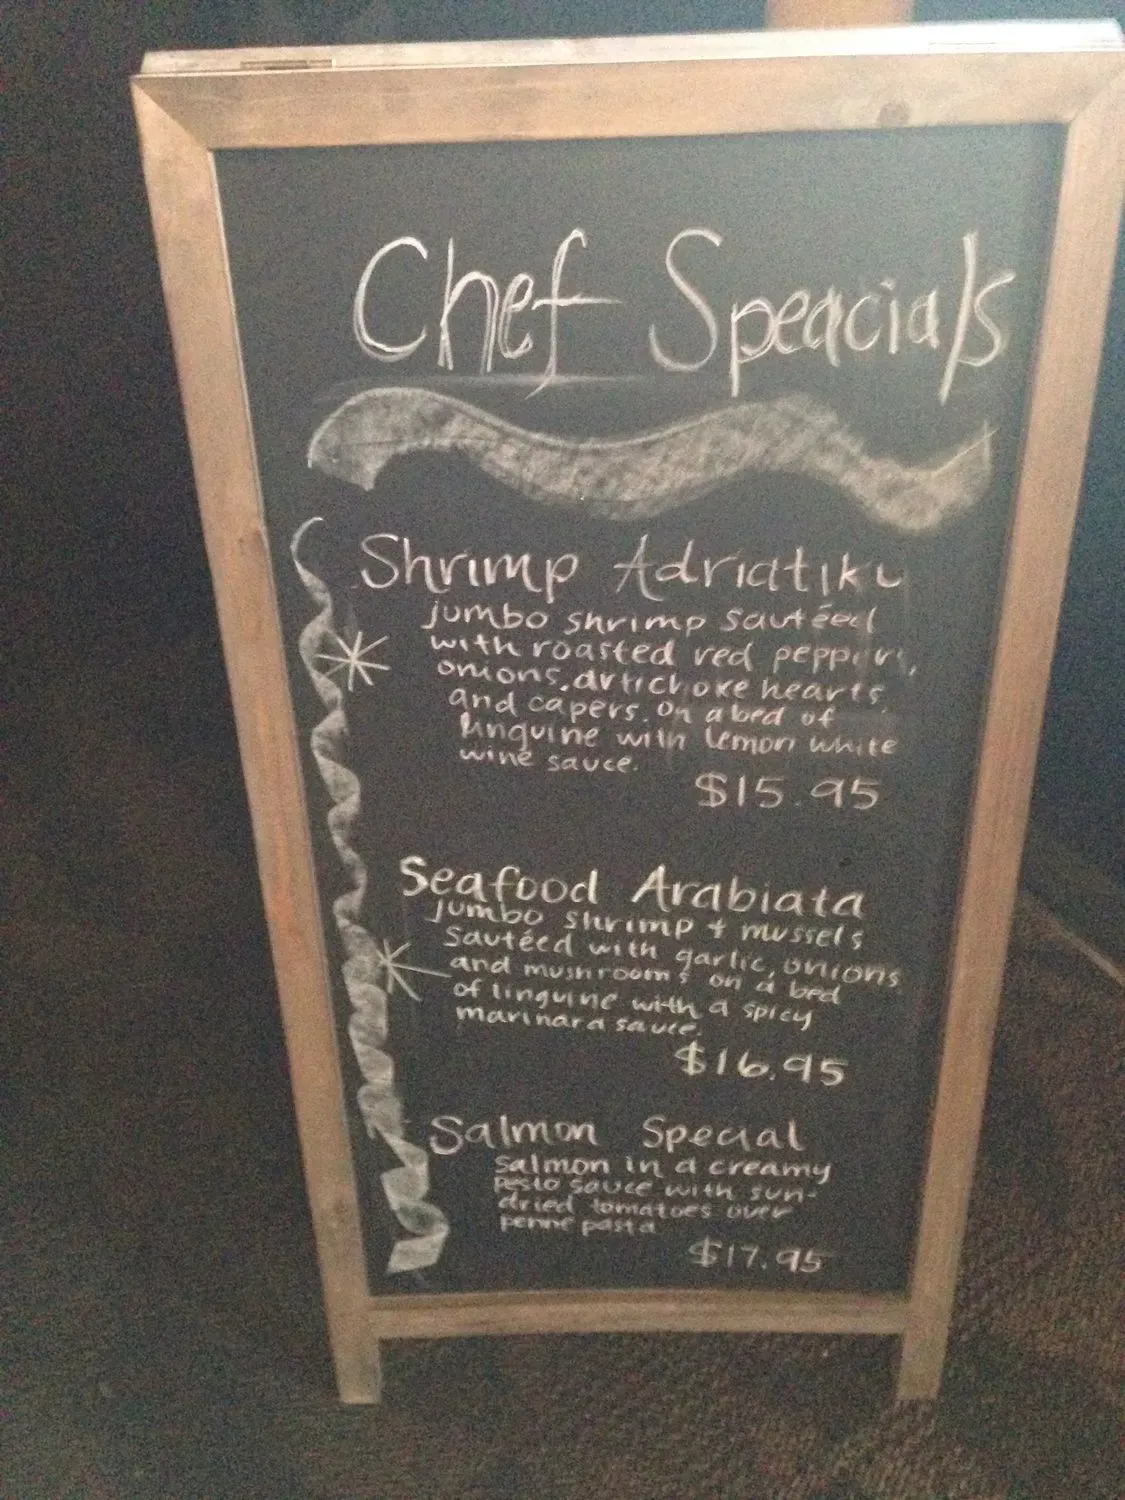 Chef Speacials
Shrimp Adriatik
jumbo shrimp sautéed
with roasted red peppers,
onions, artichoke hearts
and capers. On a bed of
linguine with lemon white
wine sauce.
$15.95
Seafood Arabiata
jumbo shrimp + mussels
Sautéed with garlic, onions
and mushrooms on a bed
of linguine with a spicy
marinara sauce.
$16.95
Salmon Special
Salmon in a creamy
pesto sauce with sun-
dried tomatoes over
penne pasta
$17.95